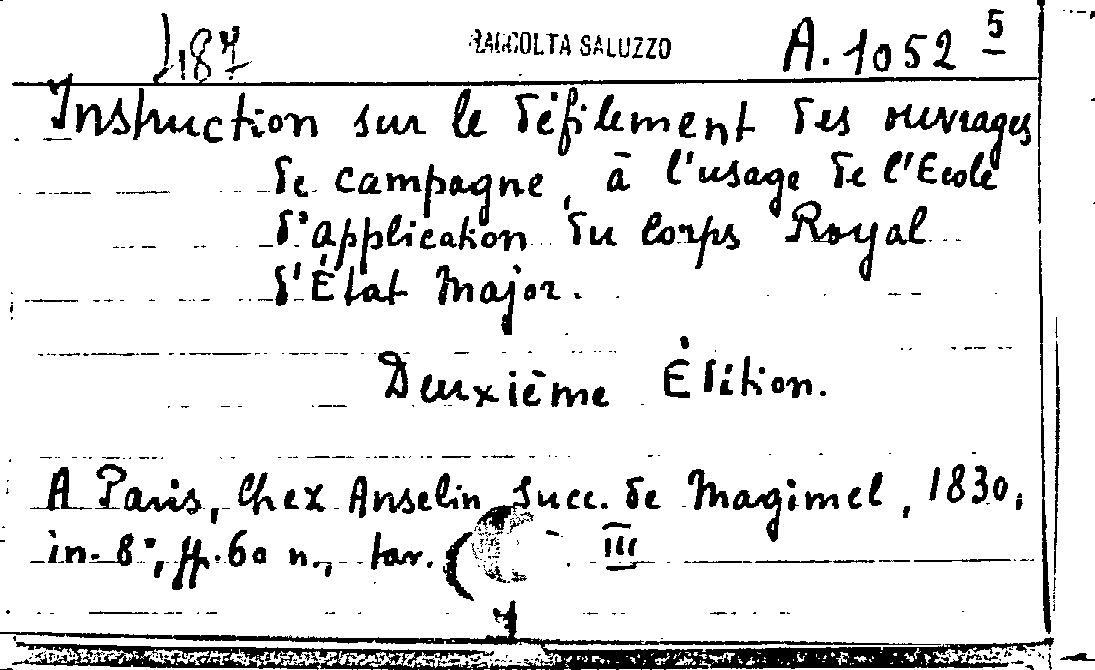 487 RACCOLTA SALUZZO A. 1052 5
Instruction sur le défilement des ouvrages
de campagne, à l'usage de l'Ecole
d'application du Corps Royal
d'État Major.
Deuxième Édition.
A Paris, Chez Anselin, Succ. de Magimel, 1830,
in-8°, ff. 60 n., tav. III